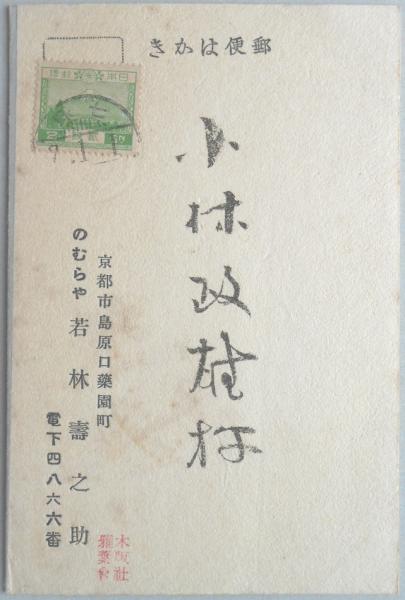 郵便はかき
小林政雄様
京都市島原口藥園町
のむらや 若林壽之助
電下四八六六番
大日本帝國郵便
9.1.1